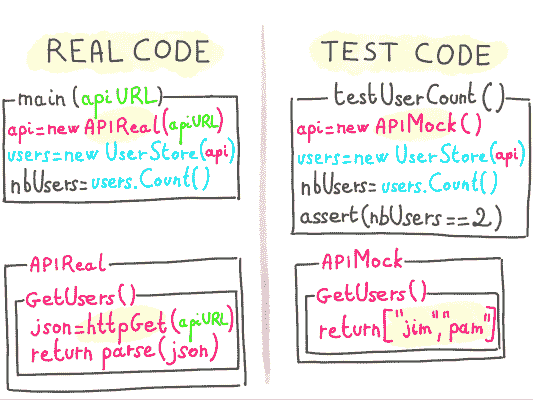 REAL CODE
main(apiURL)
api=new APIReal(apiURL)
users=new UserStore(api)
nbUsers=users.Count()
APIReal
GetUsers()
json=httpGet(apiURL)
return parse(json)
TEST CODE
testUserCount()
api=new APIMock()
users=new UserStore(api)
nbUsers=users.Count()
assert(nbUsers==2)
APIMock
GetUsers()
return["jim","pam"]